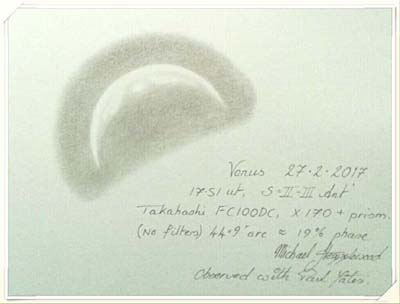 Venus 27·2·2017
17·51 ut, S=II-III Ant'
Takahashi FC100DC, x170 + prism.
(No filters) 44·9" arc ≈ 19% phase
Michael
Observed with Paul Yates.